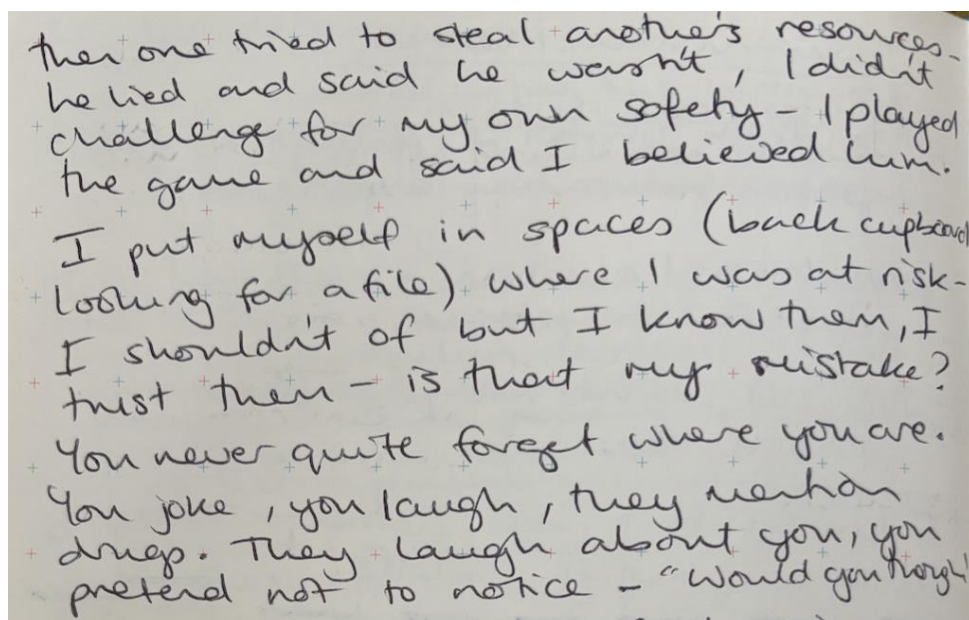 then one tried to steal another's resources -
he lied and said he wasn't, I didn't
challenge for my own safety - I played
the game and said I believed him.
I put myself in spaces (back cupboard
looking for a file) where I was at risk -
I shouldn't of but I know them, I
trust them - is that my mistake?
You never quite forget where you are.
You joke, you laugh, they mention
drugs. They laugh about you, you
pretend not to notice - "would you though